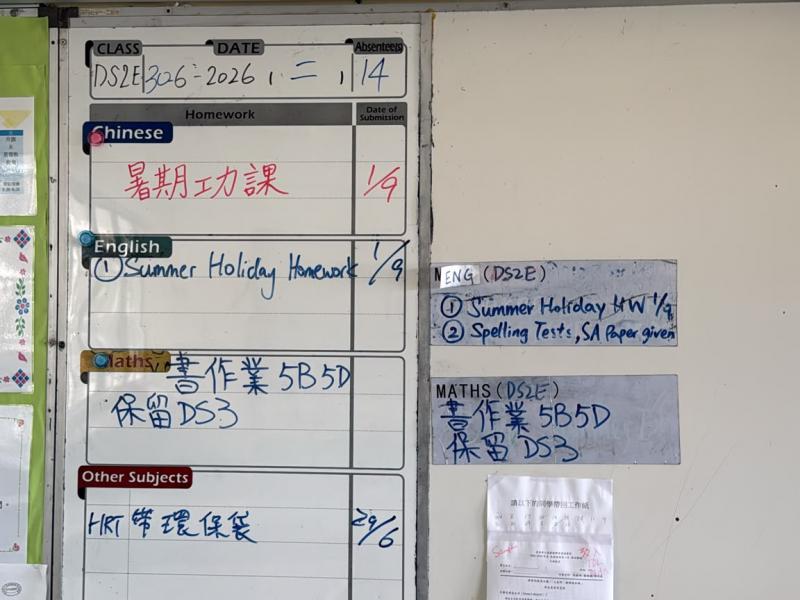 CLASS DATE Absentees
DS2E 306-2026, 二, 14
Homework Date of Submission
Chinese
暑期工力課 1/9
English
① Summer Holiday Homework 1/9
Maths
書作業 5B5D
保留DS3
Other Subjects
HRT 帶環保袋 29/6
ENG (DS2E)
① Summer Holiday HW 1/9
② Spelling Tests, SA Paper given
MATHS (DS2E)
書作業 5B5D
保留DS3
請以下的同學帶回工作紙